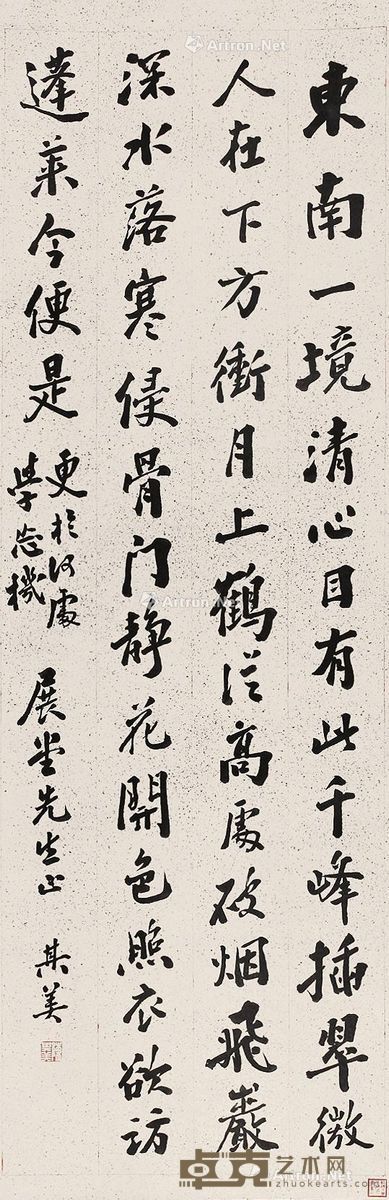 東南一境清心目有此千峰插翠微
人在下方衝月上鶴從高處破烟飛巖
深水落寒侵骨门靜花開色照衣欲訪
蓬萊今便是更於何處學忘機
展堂先生正 其美
Artron.Net
卓克艺术网
www.zhuokearts.com